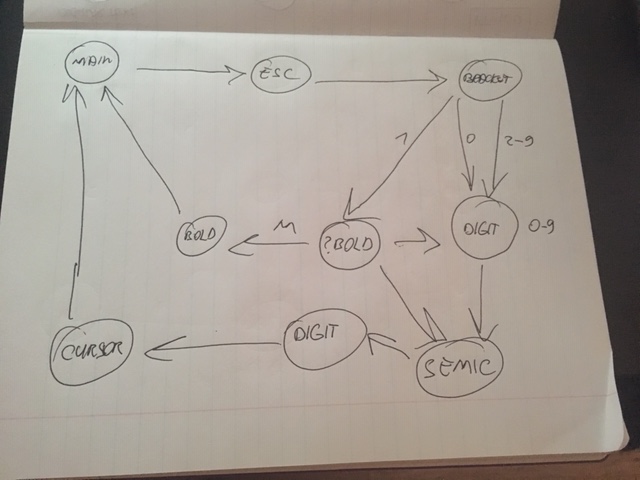 MAIN
ESC
BRACKET
1
0
2-9
BOLD
M
?BOLD
DIGIT
0-9
CURSOR
DIGIT
SEMIC